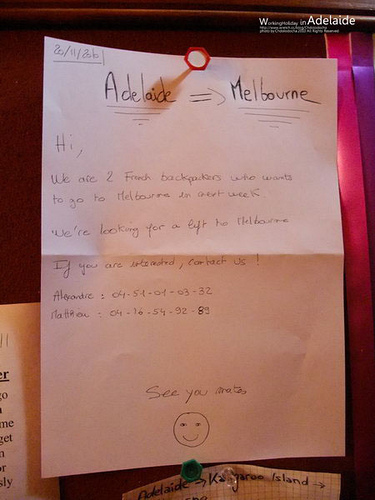 WorkingHoliday in Adelaide
20/11/2010
Adelaide => Melbourne
Hi,
We are 2 French backpackers who wants
to go to Melbourne in next week
We're looking for a lift to Melbourne
If you are interested, contact us !
Alexandre : 04-51-01-03-32
Matthieu : 04-16-54-92-89
See you mates
er
go
a
me
get
n
or
sly
Adelaide → Kangaroo Island →